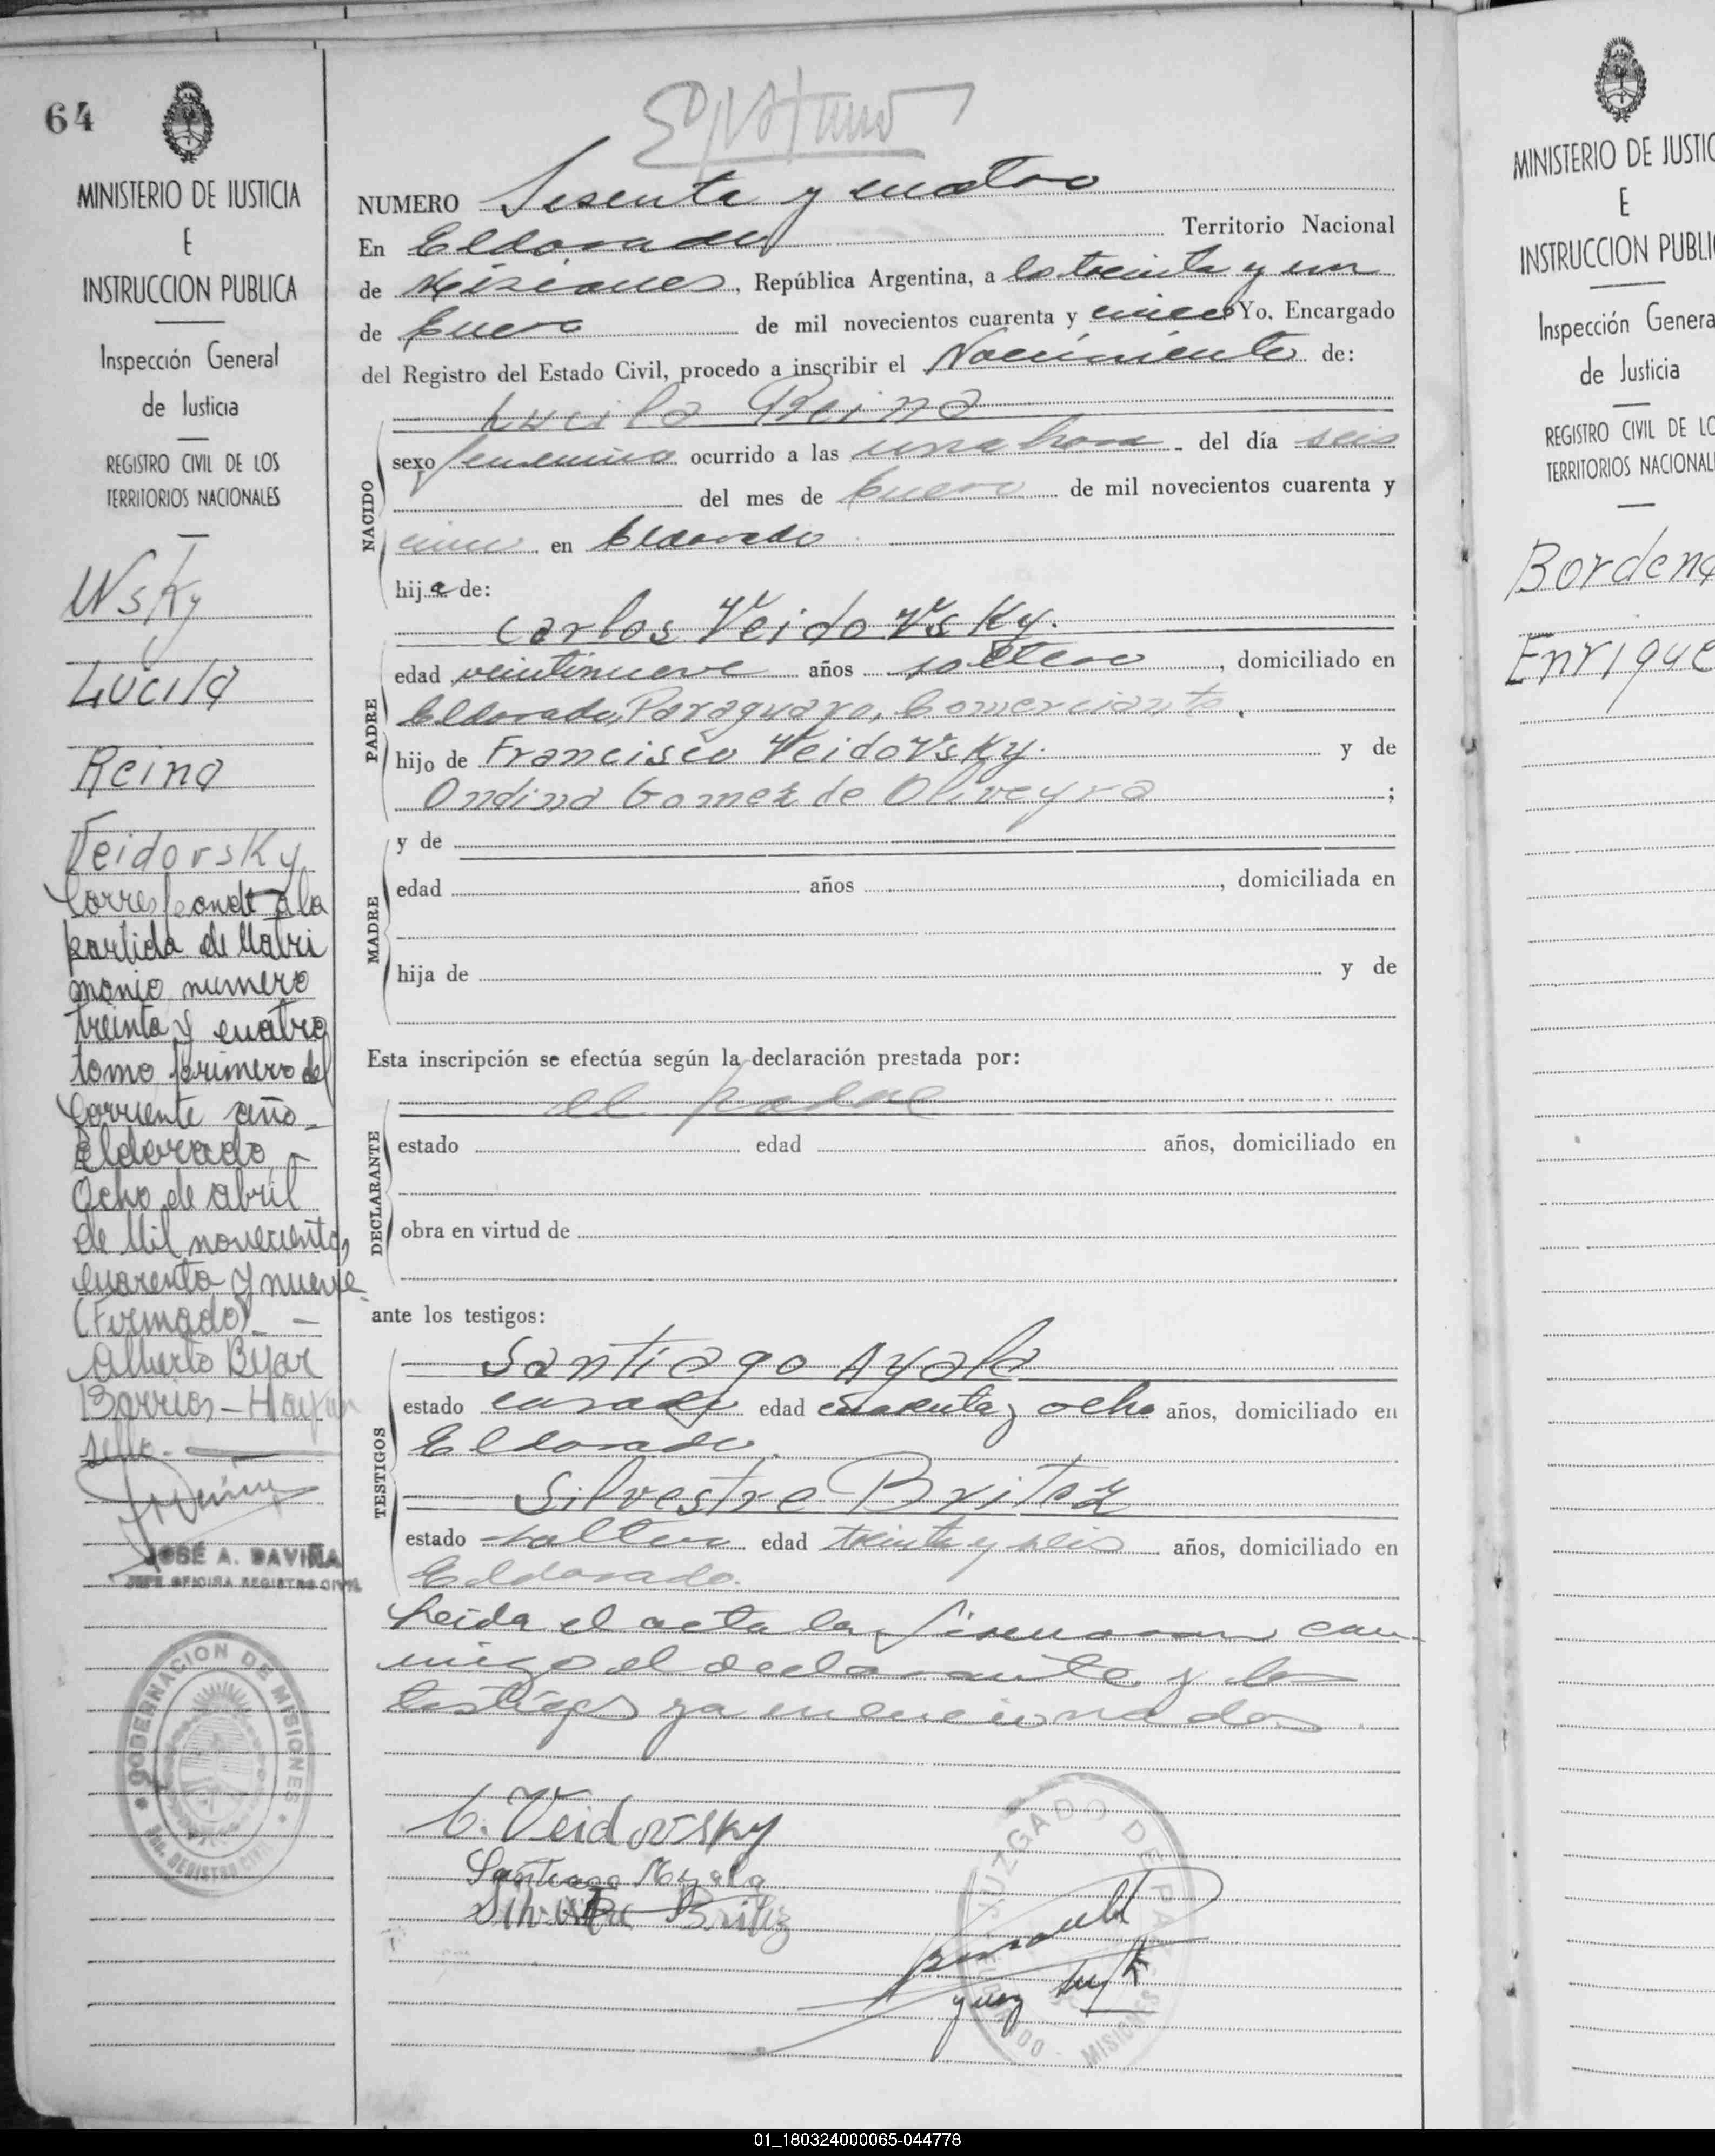 64
MINISTERIO DE JUSTICIA
E
INSTRUCCION PUBLICA
Inspección General
de Justicia
REGISTRO CIVIL DE LOS
TERRITORIOS NACIONALES
Wsky
Lucila
Reina
Veidovsky
Corresponde a la
partida de Matri
monio numero
treinta y cuatro
tomo primero del
corriente año_
Eldorado
Ocho de abril
de Mil novecientos
cuarenta y nueve_
(Firmado)_ _
Alberto
Barrios - Hay un
sello.-
JOSÉ A. DAVIÑA
JEFE OFICINA REGISTRO CIVIL
GOBERNACION DE MISIONES
REGISTRO CIVIL
NUMERO Sesenta y cuatro
En Eldorado Territorio Nacional
de Misiones, República Argentina, a los treinta y un
de Enero de mil novecientos cuarenta y cinco Yo, Encargado
del Registro del Estado Civil, procedo a inscribir el Nacimiento de:
Lucila Reina
NACIDO
sexo femenino ocurrido a las una hora del día seis
del mes de Enero de mil novecientos cuarenta y
cinco en Eldorado
hija de:
Carlos Veidovsky.
PADRE
edad veintinueve años soltero, domiciliado en
Eldorado, Paraguayo, Comerciante.
hijo de Francisco Veidovsky. y de
Ondina Gomez de Oliveyra;
MADRE
y de
edad años , domiciliada en
hija de y de
Esta inscripción se efectúa según la declaración prestada por:
el padre
DECLARANTE
estado edad años, domiciliado en
obra en virtud de
ante los testigos:
TESTIGOS
Santiago Ayala
estado casado edad cuarenta y ocho años, domiciliado en
Eldorado.
Silvestre Britez
estado soltero edad treinta y seis años, domiciliado en
Eldorado.
Leida el acta la firmaron con-
migo el declarante y los
testigos ya mencionados.
C. Veidovsky
Santiago Ayala
Silvestre Britez
JUZGADO DE PAZ
ELDORADO - MISIONES
MINISTERIO DE JUSTIC
E
INSTRUCCION PUBLI
Inspección Genera
de Justicia
REGISTRO CIVIL DE LO
TERRITORIOS NACIONAL
Bordena
Enrique
01_180324000065-044778